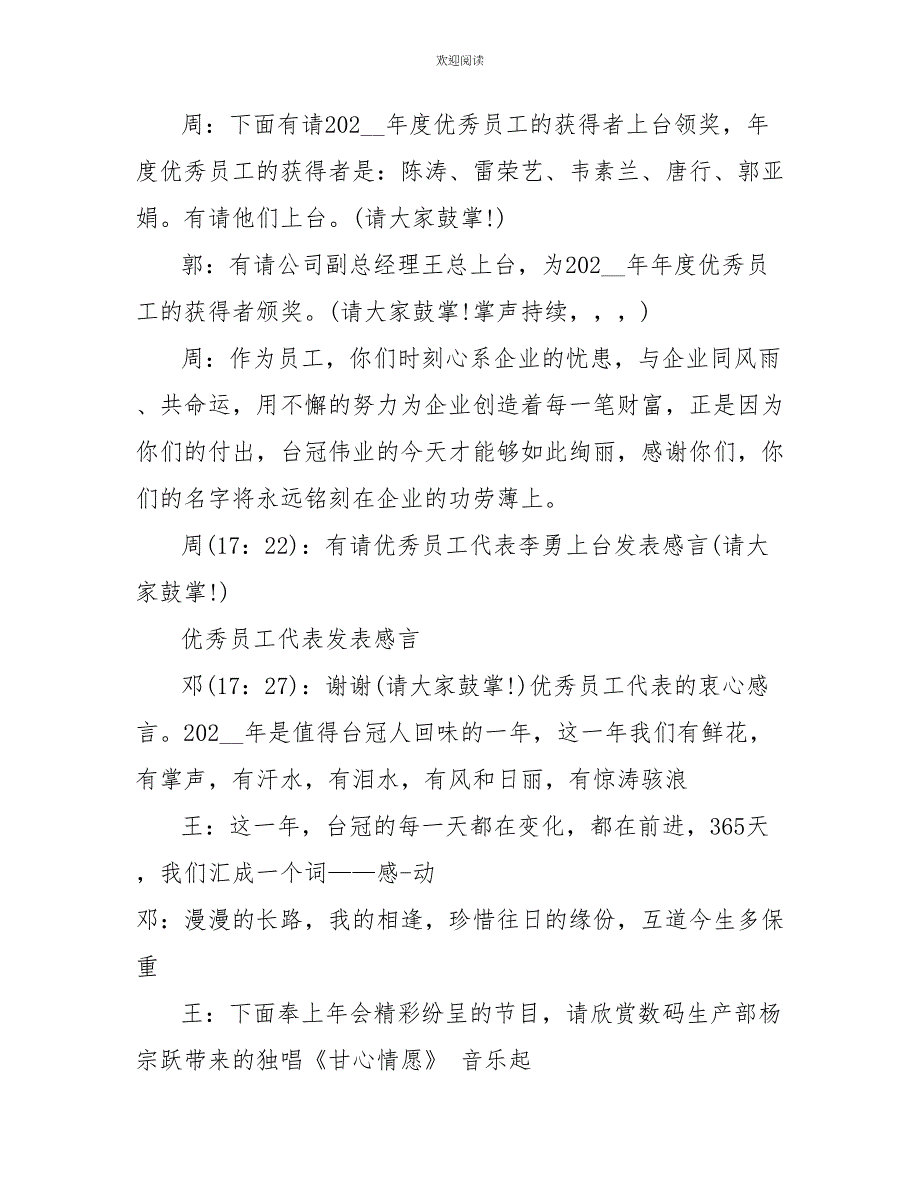 欢迎阅读
周：下面有请202__年度优秀员工的获得者上台领奖，年
度优秀员工的获得者是：陈涛、雷荣艺、韦素兰、唐行、郭亚
娟。有请他们上台。(请大家鼓掌!)
郭：有请公司副总经理王总上台，为202__年年度优秀员
工的获得者颁奖。(请大家鼓掌!掌声持续，，，)
周：作为员工，你们时刻心系企业的忧患，与企业同风雨
、共命运，用不懈的努力为企业创造着每一笔财富，正是因为
你们的付出，台冠伟业的今天才能够如此绚丽，感谢你们，你
们的名字将永远铭刻在企业的功劳薄上。
周(17：22)：有请优秀员工代表李勇上台发表感言(请大
家鼓掌!)
优秀员工代表发表感言
邓(17：27)：谢谢(请大家鼓掌!)优秀员工代表的衷心感
言。202__年是值得台冠人回味的一年，这一年我们有鲜花，
有掌声，有汗水，有泪水，有风和日丽，有惊涛骇浪
王：这一年，台冠的每一天都在变化，都在前进，365天
，我们汇成一个词——感-动
邓：漫漫的长路，我的相逢，珍惜往日的缘份，互道今生多保
重
王：下面奉上年会精彩纷呈的节目，请欣赏数码生产部杨
宗跃带来的独唱《甘心情愿》 音乐起